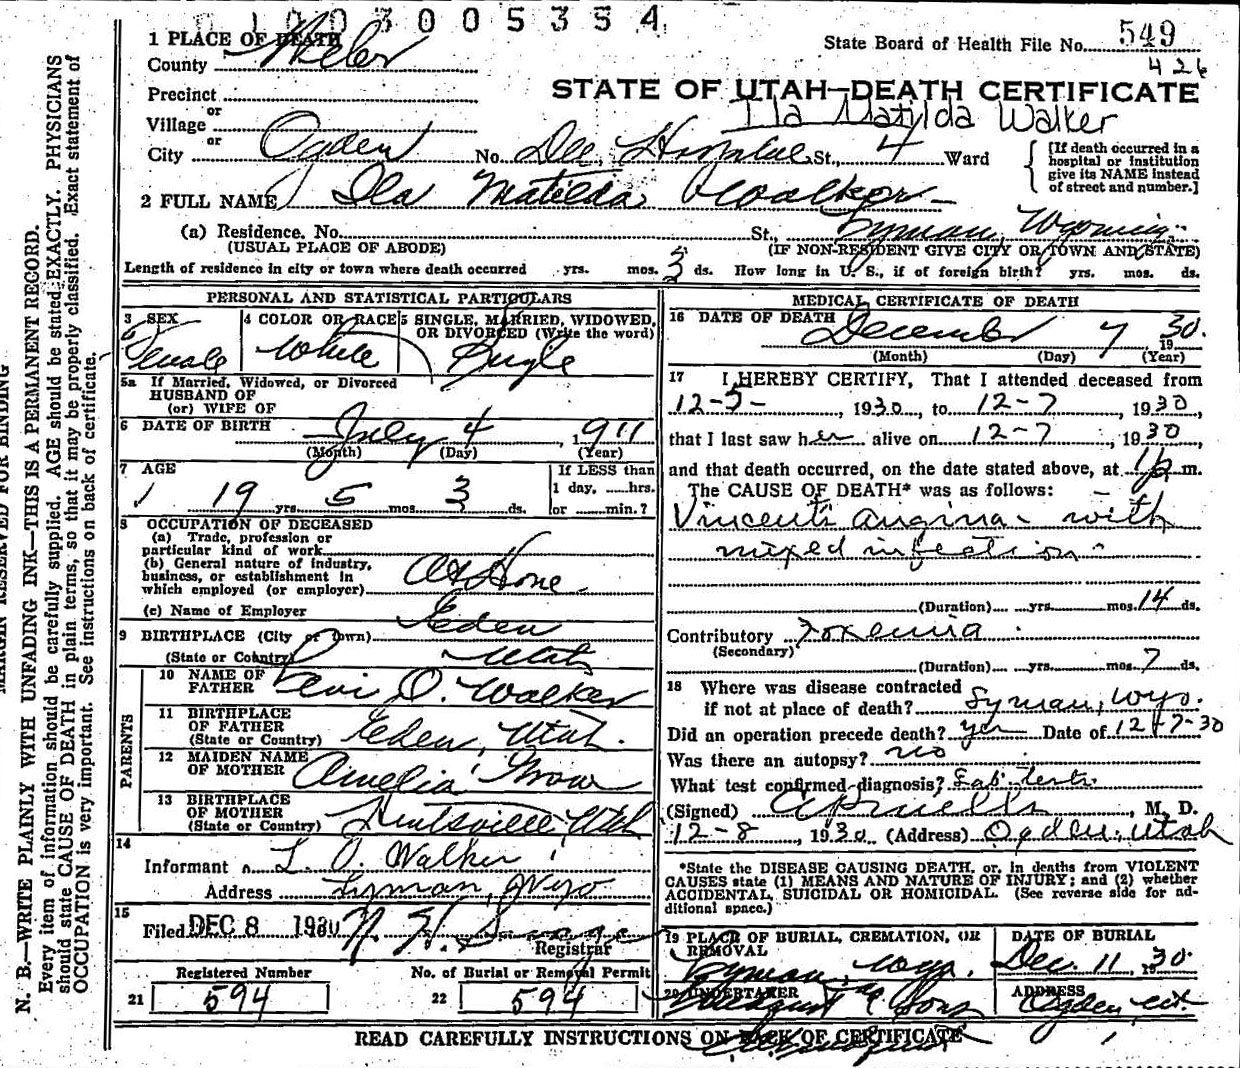 1003005354
1 PLACE OF DEATH
County Weber
State Board of Health File No. 549
426
Precinct
or
Village
or
STATE OF UTAH—DEATH CERTIFICATE
Ila Matilda Walker
City Ogden No. Dee Hospital St., 4 Ward
[If death occurred in a hospital or institution give its NAME instead of street and number.]
2 FULL NAME Ila Matilda Walker
(a) Residence. No. St., Lyman, Wyoming
(USUAL PLACE OF ABODE) (IF NON-RESIDENT GIVE CITY OR TOWN AND STATE)
Length of residence in city or town where death occurred yrs. mos. 3 ds. How long in U. S., if of foreign birth? yrs. mos. ds.
PERSONAL AND STATISTICAL PARTICULARS
3 SEX Female
4 COLOR OR RACE White
5 SINGLE, MARRIED, WIDOWED, OR DIVORCED (Write the word) Single
5a If Married, Widowed, or Divorced
HUSBAND OF
(or) WIFE OF
6 DATE OF BIRTH July 4, 1911
(Month) (Day) (Year)
7 AGE
19 yrs. 5 mos. 3 ds.
If LESS than
1 day, hrs.
or min.?
8 OCCUPATION OF DECEASED
(a) Trade, profession or
particular kind of work
(b) General nature of industry,
business, or establishment in
which employed (or employer) At Home
(c) Name of Employer
9 BIRTHPLACE (City or town) Eden
(State or Country) Utah
PARENTS
10 NAME OF FATHER Levi O. Walker
11 BIRTHPLACE OF FATHER (State or Country) Eden, Utah.
12 MAIDEN NAME OF MOTHER Amelia Grow
13 BIRTHPLACE OF MOTHER (State or Country) Huntsville, Utah
14
Informant L. O. Walker
Address Lyman, Wyo
15
Filed DEC 8 1930
Registrar
Registered Number
21 594
No. of Burial or Removal Permit
22 594
MEDICAL CERTIFICATE OF DEATH
16 DATE OF DEATH December 7 1930.
(Month) (Day) (Year)
17 I HEREBY CERTIFY, That I attended deceased from
12-5-, 1930, to 12-7, 1930,
that I last saw her alive on 12-7, 1930,
and that death occurred, on the date stated above, at m.
The CAUSE OF DEATH* was as follows:
Vincenti angina - with
mixed infection -
(Duration) yrs. mos. 14 ds.
Contributory Toxemia
(Secondary)
(Duration) yrs. mos. 7 ds.
18 Where was disease contracted
if not at place of death? Lyman, Wyo.
Did an operation precede death? yes Date of 12-7-30
Was there an autopsy? no
What test confirmed diagnosis? Lab. tests.
(Signed) , M. D.
12-8, 1930 (Address) Ogden, Utah
*State the DISEASE CAUSING DEATH, or, in deaths from VIOLENT
CAUSES state (1) MEANS AND NATURE OF INJURY; and (2) whether
ACCIDENTAL, SUICIDAL OR HOMICIDAL. (See reverse side for ad-
ditional space.)
19 PLACE OF BURIAL, CREMATION, OR REMOVAL
Lyman, Wyo.
DATE OF BURIAL
Dec. 11, 1930.
20 UNDERTAKER
& Sons
ADDRESS
Ogden, Ut.
READ CAREFULLY INSTRUCTIONS ON BACK OF CERTIFICATE
MARGIN RESERVED FOR BINDING
N. B.—WRITE PLAINLY WITH UNFADING INK—THIS IS A PERMANENT RECORD.
Every item of information should be carefully supplied. AGE should be stated EXACTLY. PHYSICIANS
should state CAUSE OF DEATH in plain terms, so that it may be properly classified. Exact statement of
OCCUPATION is very important. See instructions on back of certificate.